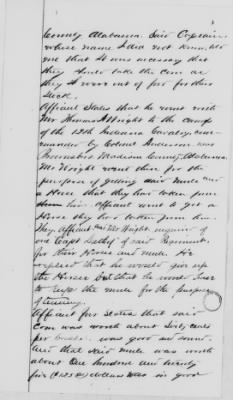 County Alabama. Said Captain
whose name I did not know, told
me that it was necessary that
they should take the corn as
they were out of feed for their
Stock.
Affiant States that he went with
Mr Howard Wright to the camp
of the 12th Indiana Cavalry, com-
manded by Colonel Anderson near
Brownsboro Madison County, Alabama.
Mr Wright went there for the
purpose of getting said mule and
a Horse that they had taken from
him. Affiant went to get a
Horse they had taken from him.
They, Affiant and Mr Wright, inquired of
one Capt of said Regiment,
for their Horses and mule. He
replied that he would give up
the Horses but that he would have
to keep the mule for the purpose
of teaming.
Affiant further States that said
Corn was worth about Sixty cents
per bushel. was good and sound.
And that said mule was worth
about One hundred and twenty
five ($125.00) dollars was in good